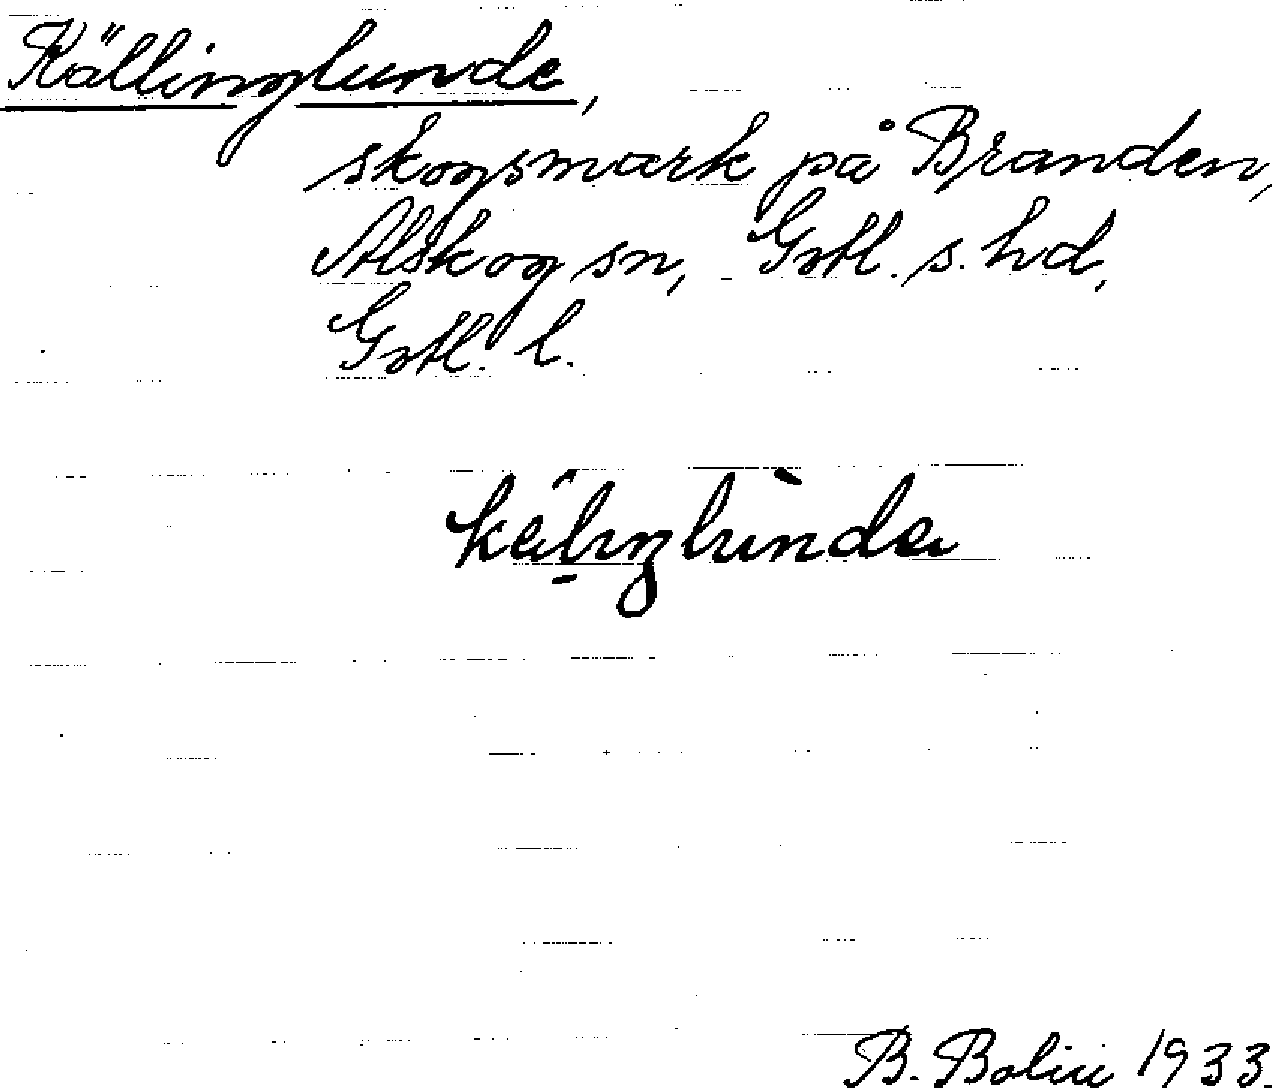 Källinglunde,
skogsmark på Branden,
Alskog sn, Gotl. s. hd,
Gotl. l.
B. Bolin 1933